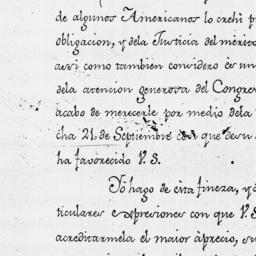 de algunos Americanos lo crehí p
obligacion, y dela Justicia del merito
assi como tambien considero es un
dela atencion generosa del Congre
acabo de merecerle por medio dela
cha 21, de Septiembre con que de su
ha favorecido V. S.
Yó hago de esta fineza, y
ticulares expresiones con que V. S
acreditarmela el maior àprecio, su